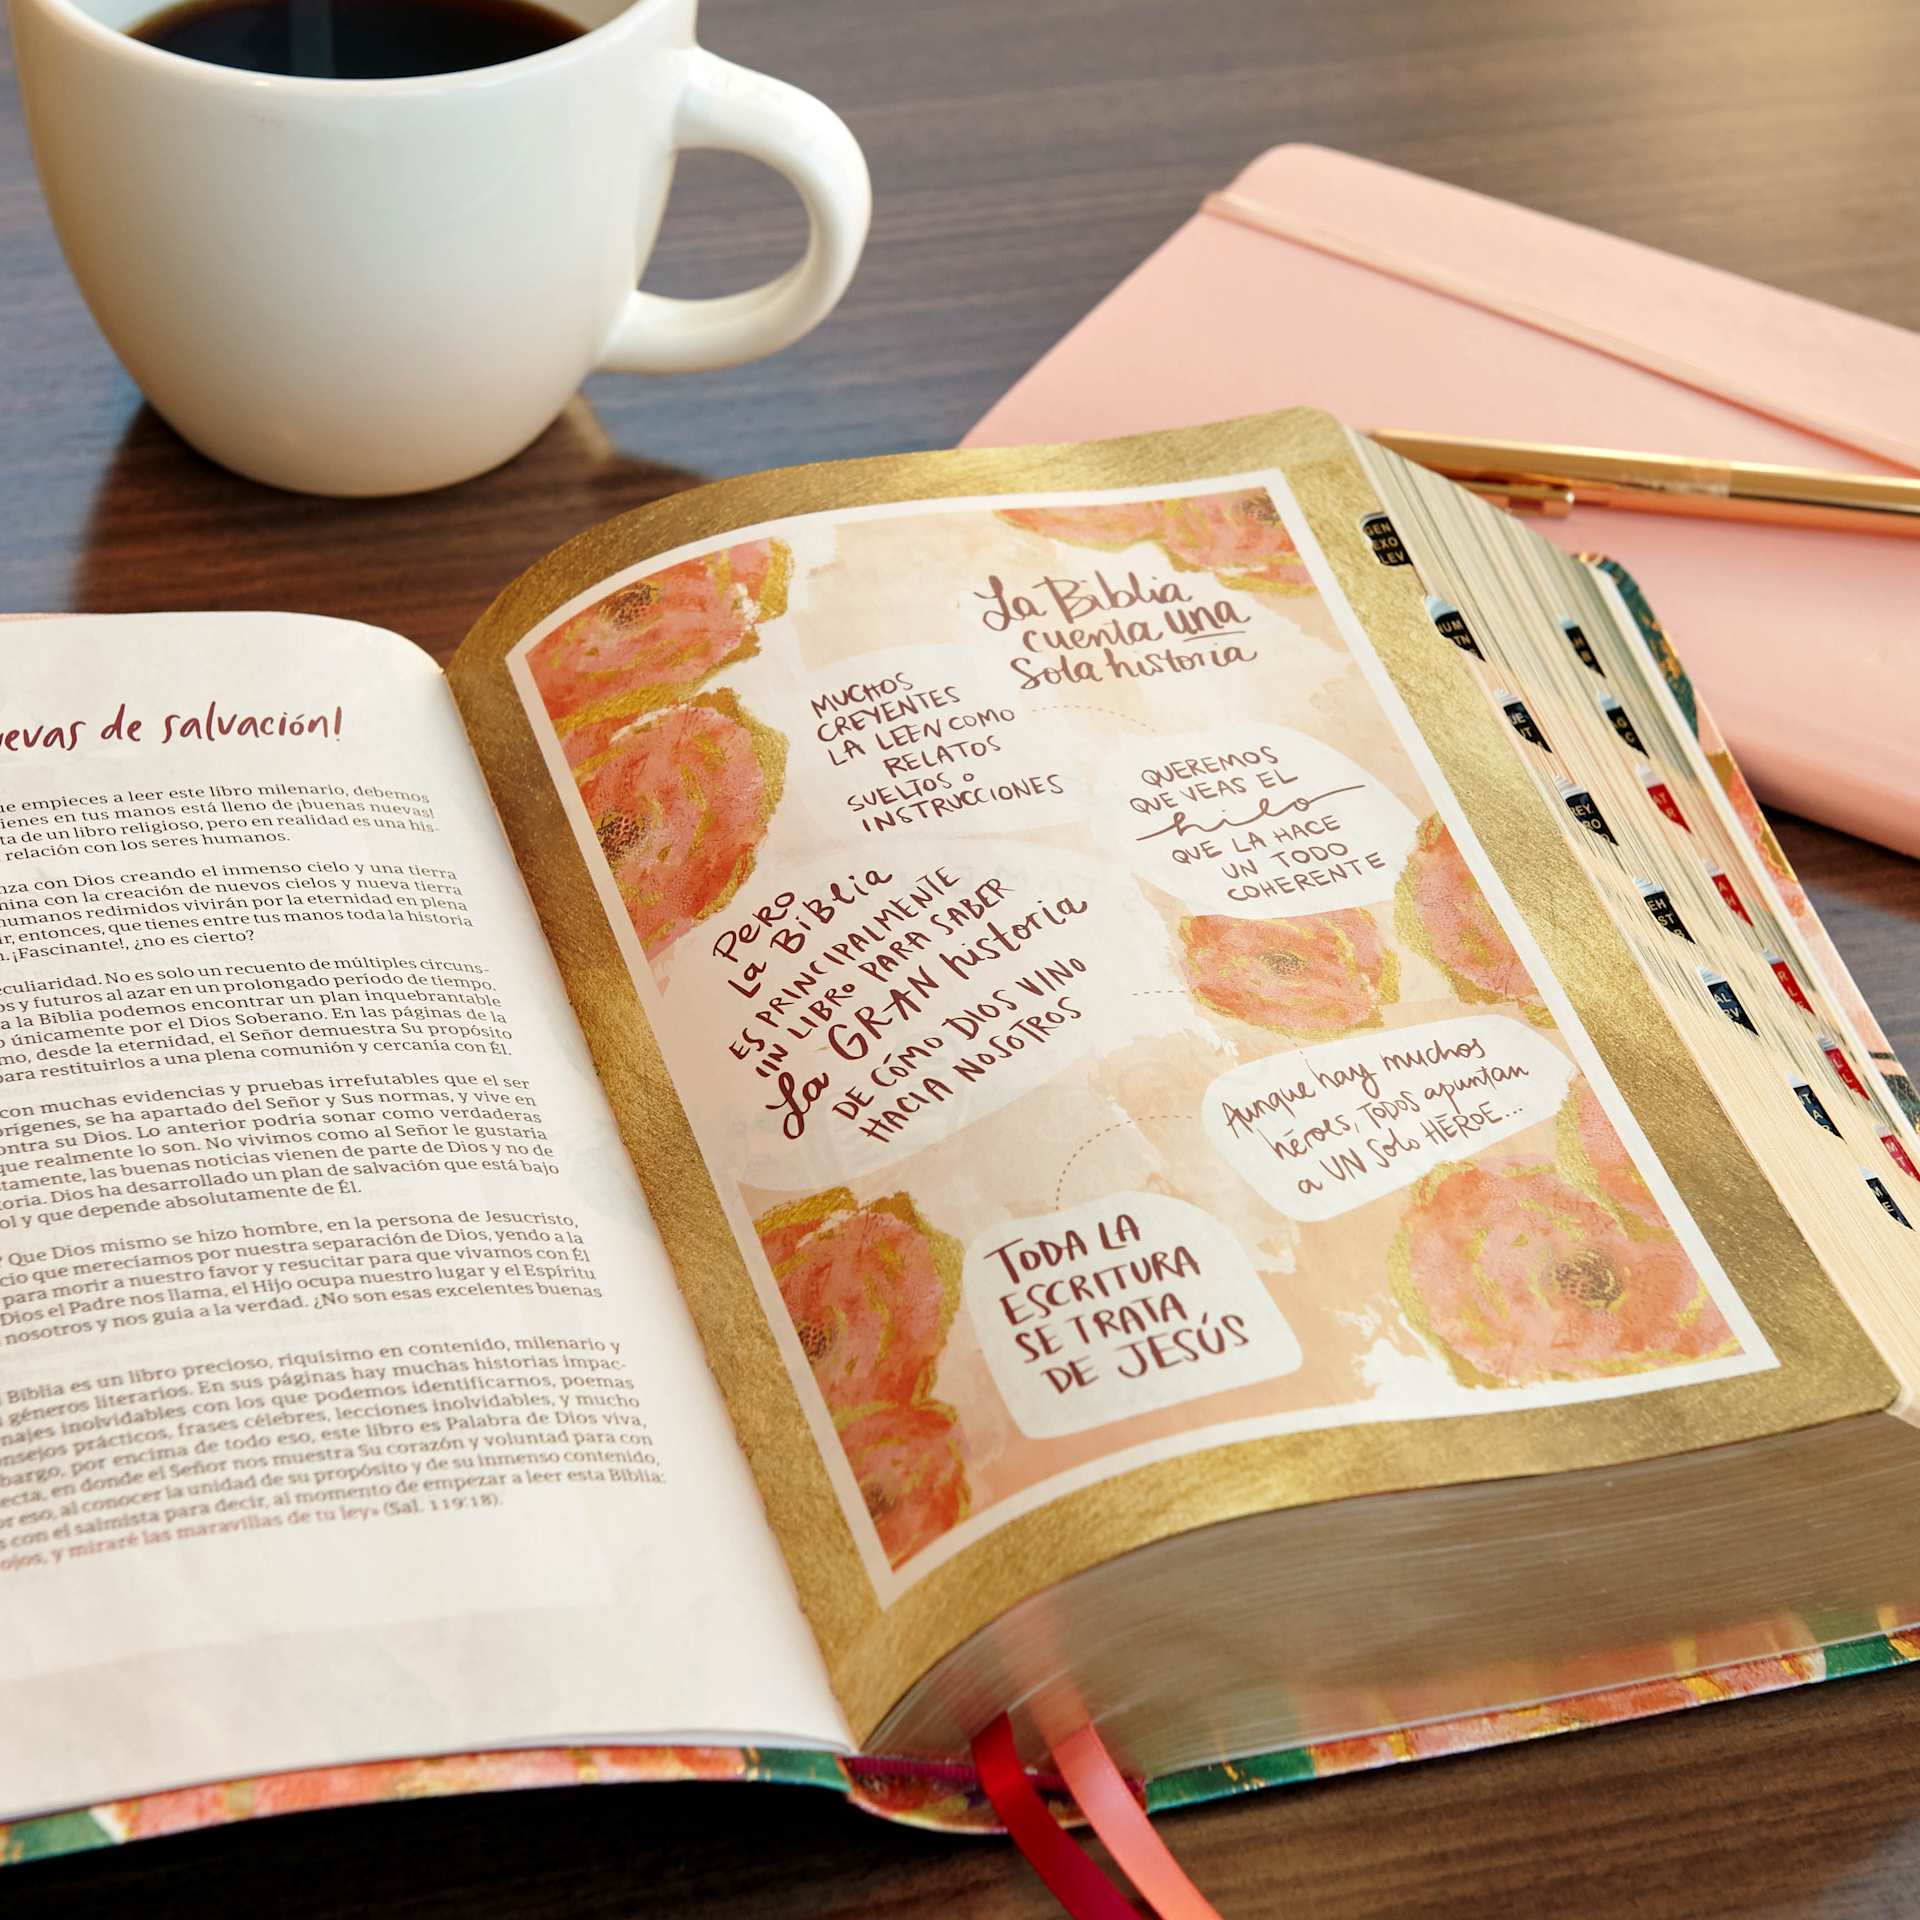 evas de salvación!
empieces a leer este libro milenario, debemos
ienes en tus manos está lleno de ¡buenas nuevas!
de un libro religioso, pero en realidad es una his-
relación con los seres humanos.
con Dios creando el inmenso cielo y una tierra
con la creación de nuevos cielos y nueva tierra
humanos redimidos vivirán por la eternidad en plena
entonces, que tienes entre tus manos toda la historia
¡Fascinante!, ¿no es cierto?
culiaridad. No es solo un recuento de múltiples circuns-
os y futuros al azar en un prolongado periodo de tiempo.
a la Biblia podemos encontrar un plan inquebrantable
únicamente por el Dios Soberano. En las páginas de la
mo, desde la eternidad, el Señor demuestra Su propósito
para restituirlos a una plena comunión y cercanía con Él.
con muchas evidencias y pruebas irrefutables que el ser
orígenes, se ha apartado del Señor y Sus normas, y vive en
contra su Dios. Lo anterior podría sonar como verdaderas
que realmente lo son. No vivimos como al Señor le gustaría
stamente, las buenas noticias vienen de parte de Dios y no de
toria. Dios ha desarrollado un plan de salvación que está bajo
ol y que depende absolutamente de Él.
? Que Dios mismo se hizo hombre, en la persona de Jesucristo,
cio que merecíamos por nuestra separación de Dios, yendo a la
para morir a nuestro favor y resucitar para que vivamos con Él
Dios el Padre nos llama, el Hijo ocupa nuestro lugar y el Espíritu
nosotros y nos guia a la verdad. ¿No son esas excelentes buenas
Biblia es un libro precioso, riquísimo en contenido, milenario y
géneros literarios. En sus páginas hay muchas historias impac-
najes inolvidables con los que podemos identificarnos, poemas
onsejos prácticos, frases célebres, lecciones inolvidables, y mucho
bargo, por encima de todo eso, este libro es Palabra de Dios viva,
ecta, en donde el Señor nos muestra Su corazón y voluntad para con
or eso, al conocer la unidad de su propósito y de su inmenso contenido,
con el salmista para decir, al momento de empezar a leer esta Biblia:
ojos, y miraré las maravillas de tu ley» (Sal. 119:18).
La Biblia
cuenta una
Sola historia
MUCHOS
CREYENTES
LA LEEN COMO
RELATOS
SUELTOS o
INSTRUCCIONES
QUEREMOS
QUE VEAS EL
hilo
QUE LA HACE
UN TODO
COHERENTE
PERO
La BiBlia
ES PRINCIPALMENTE
UN LIBRO PARA SABER
La GRAN historia
DE CÓMO DIOS VINO
HACIA NOSOTROS
Aunque hay muchos
héroes, TODOS apuntan
a UN Solo HÉROE...
TODA LA
ESCRITURA
SE TRATA
DE JESÚS
GEN
EXO
LEV